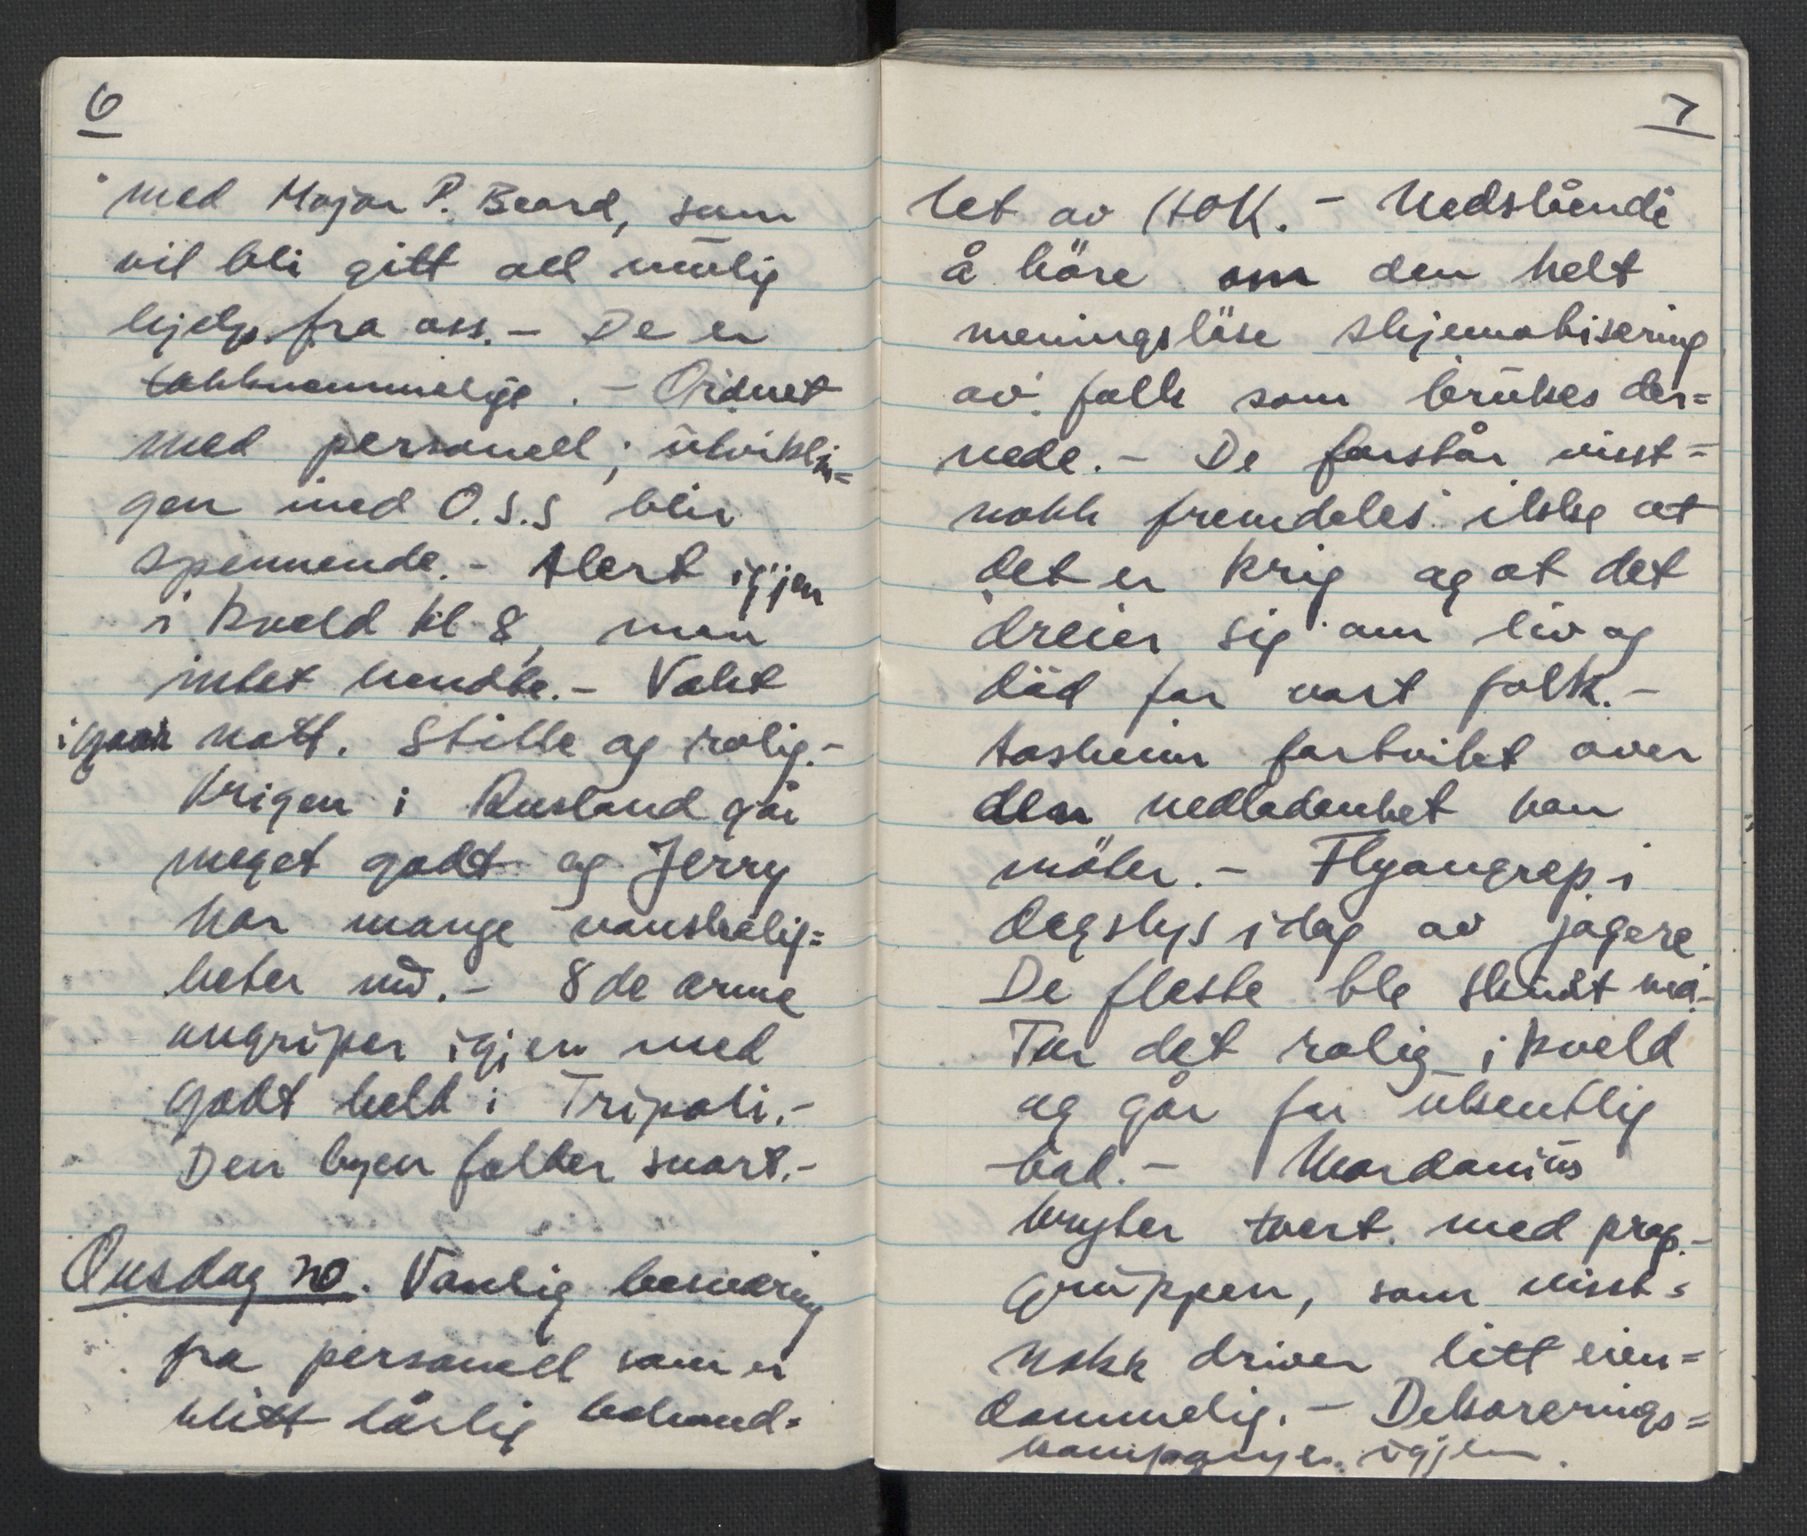 6
med Major P. Beard, som
vil bli gitt all mulig
hjelp fra oss. - De er
takknemmelige. - Ordnet
med personell; utviklin=
gen med O.S.S blir
spennende. - Alert igjen
i kveld kl 8, men
intet hendte. - Vakt
igaar natt. Stille og rolig. -
Krigen i Rusland går
meget godt og Jerry
har mange vanskelig=
heter nu. - 8de arme
angriper igjen med
godt held i Tripoli. -
Den byen falder snart. -
Onsdag 20. Vanlig besværing
fra personell som er
blitt dårlig behand=
7
let av HOK. - Nedslående
å höre om den helt
meningslöse skjematisering
av folk som brukes der=
nede. - De forstår visst=
nokk fremdeles ikke at
det er krig og at det
dreier sig om liv og
död for vort folk. -
Aasheim fortvilet over
den nedladenhet han
möter. - Flyangrep i
dagslys idag av jagere
De fleste ble skudt ned. -
Tar det rolig i kveld
og går for utsentlig
bad. - Mardonius
bryter tvert med prop. -
gruppen, som visst=
nokk driver litt eien=
dommelig. - Dekorerings=
kampanjen igjen.